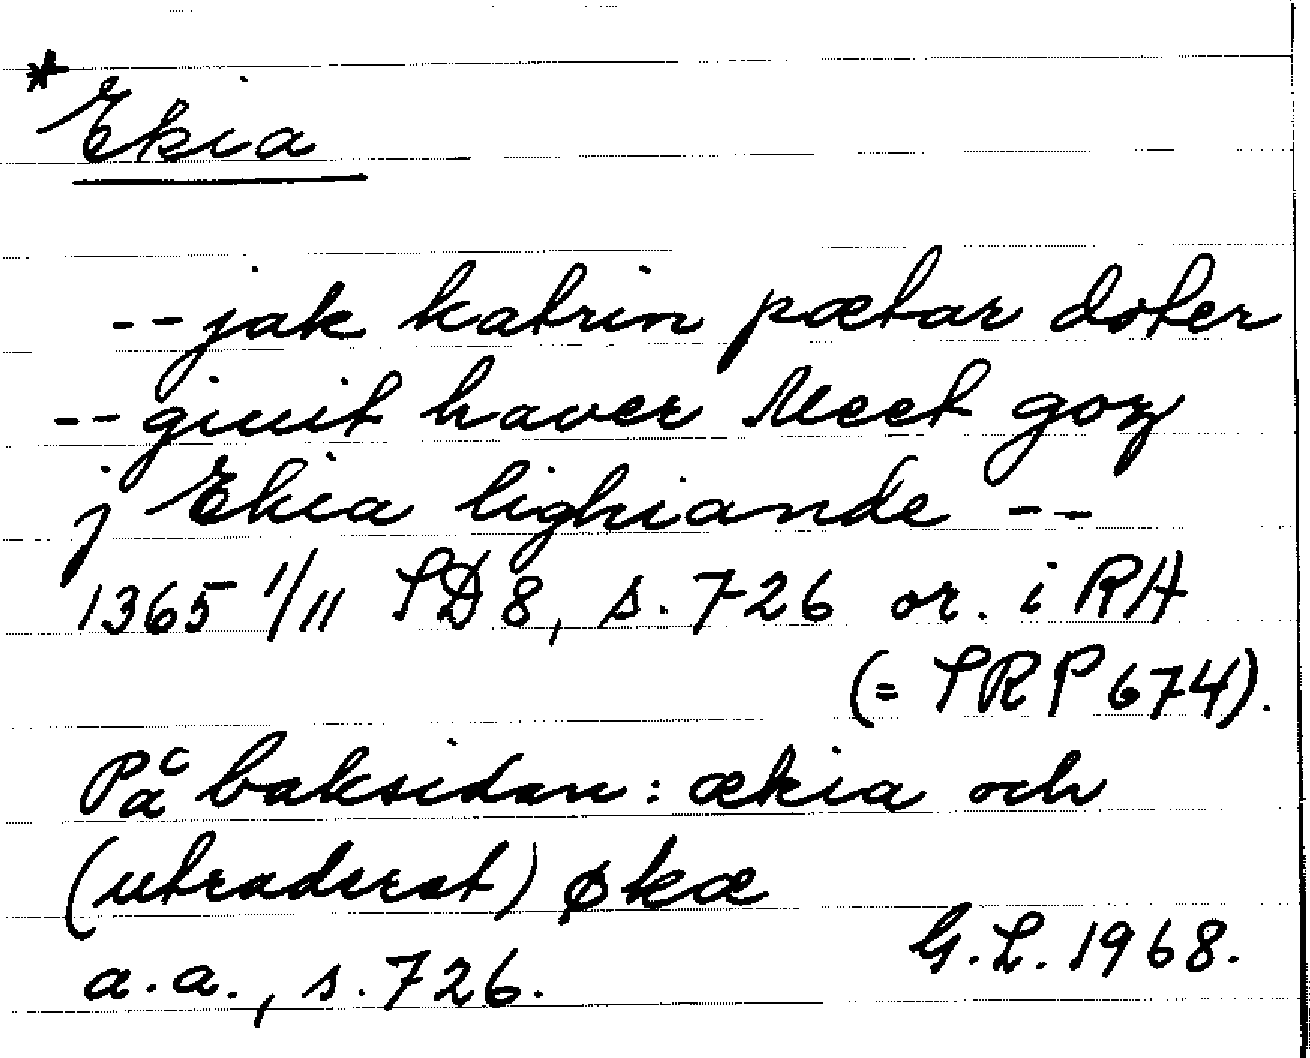 * Ekia
-- jak katrin pætar doter
-- giuit haver Meet goz
j Ekia lighiande --
1365 1/11 SD 8, s. 726 or. i RA
(= SRP 674).
På baksidan: ækia och
(utraderat) økæ
a.a., s. 726.
G.L. 1968.